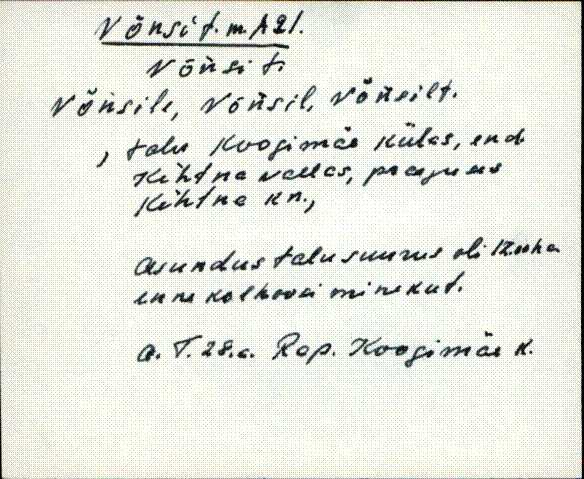 Võnsi t. m. A 21.
Võńsi t.
Võńsile, Võńsil, Võńsilt.
, talu Koogimäe külas, end.
Kehtna vallas, praeguses
Kehtna kn.,
asundustalu suurus oli 12.00 ha
enne kolhoosi minekut.
a. T. 28. a. Rap. Koogimäe k.